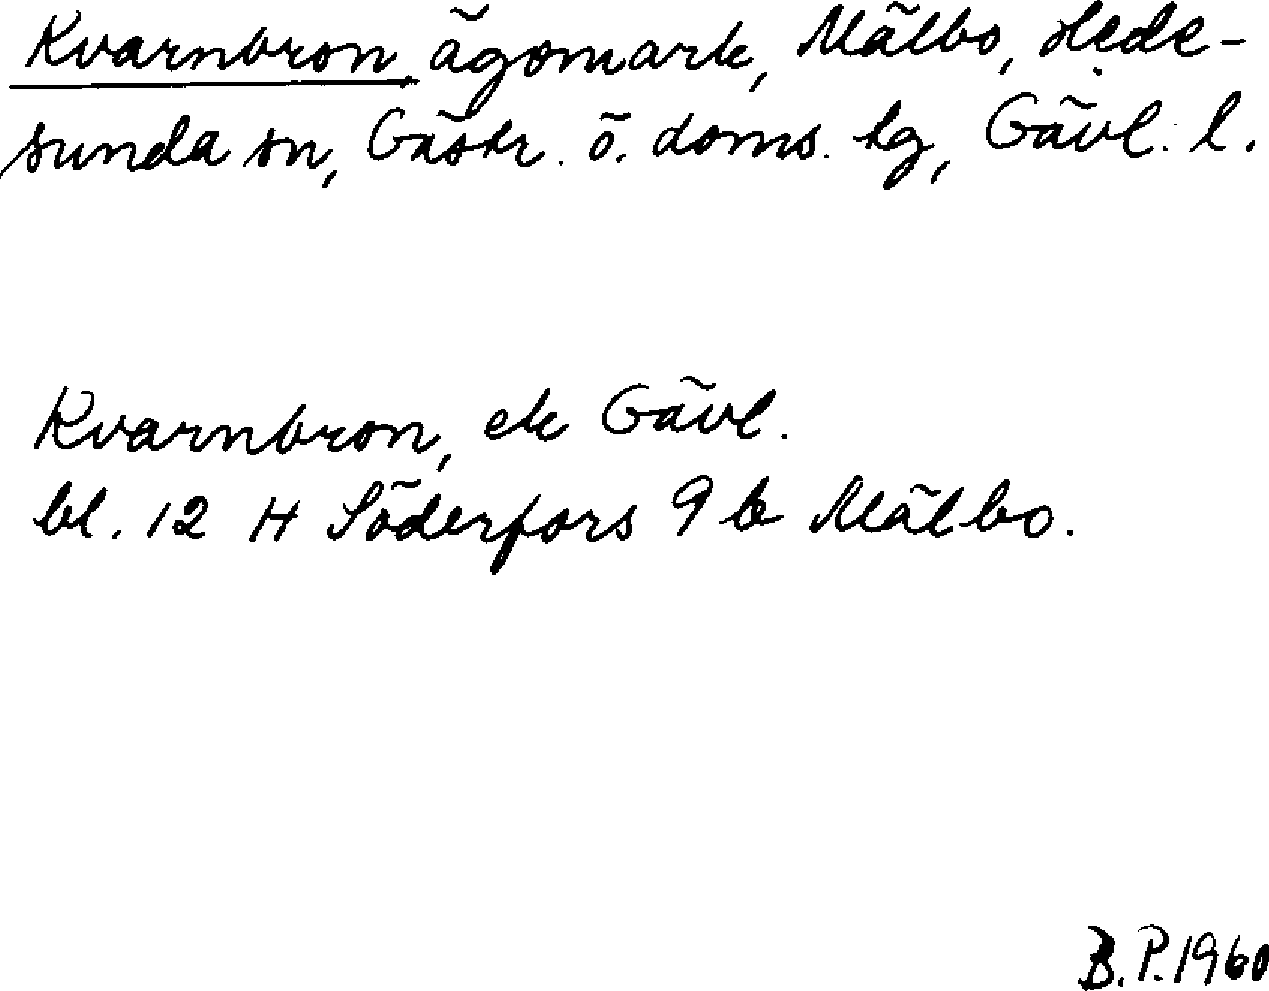 Kvarnbron, ägomark, Mälbo, Hede-
sunda sn, Gästr. ö. doms. tg, Gävl. l.
Kvarnbron, ek Gävl.
bl. 12 H Söderfors 9 b Mälbo.
B.P. 1960